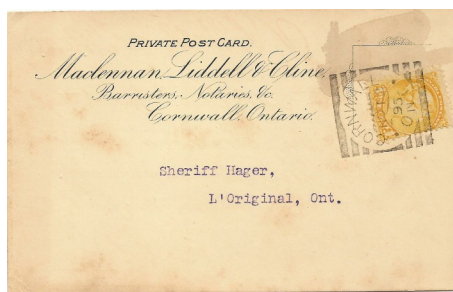 PRIVATE POST CARD.
Maclennan, Liddell & Cline,
Barristers, Notaries, &c.
Cornwall, Ontario.
CORNWALL
95
ON
Sheriff Hager,
L'Original, Ont.